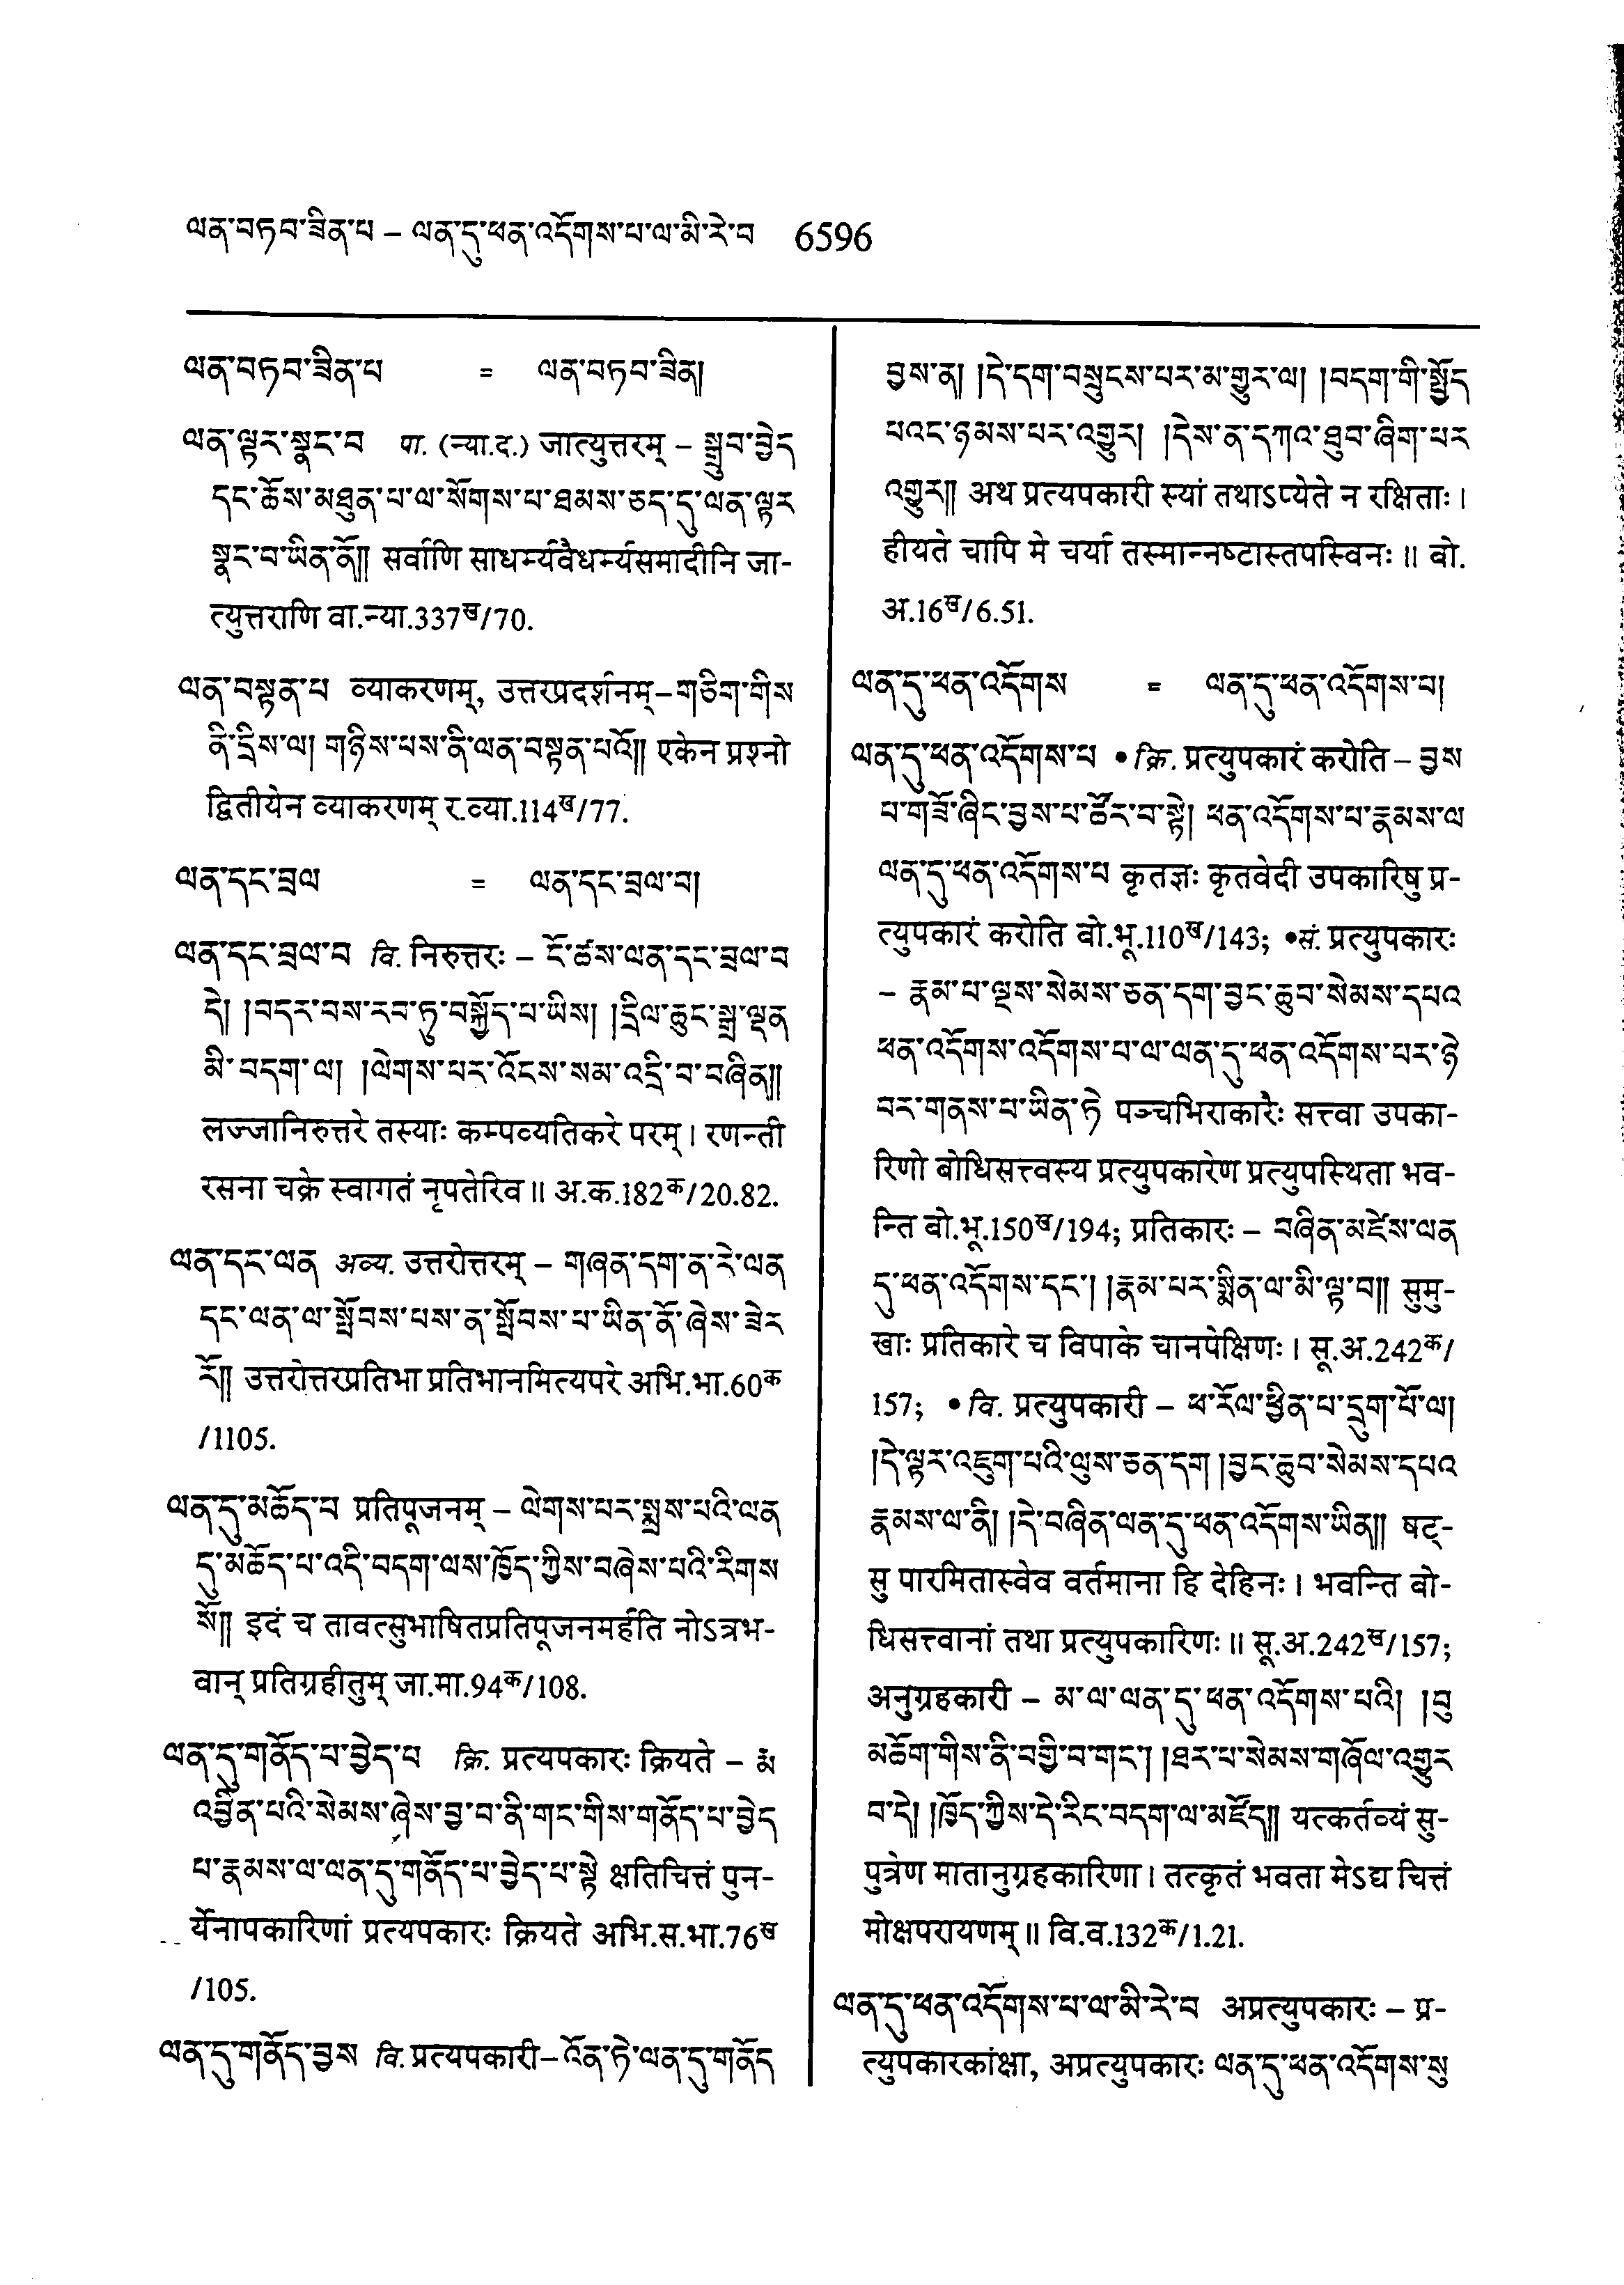 ལན་བཏབ་ཟིན་པ – ལན་དུ་ཕན་འདོགས་པ་ལ་མི་རེ་བ 6596
ལན་བཏབ་ཟིན་པ = ལན་བཏབ་ཟིན།
ལན་ལྟར་སྣང་བ पा. (न्या.द.) जात्युत्तरम् – སྒྲུབ་བྱེད
དང་ཆོས་མཐུན་པ་ལ་སོགས་པ་ཐམས་ཅད་དུ་ལན་ལྟར
སྣང་བ་ཡིན་ནོ༎ सर्वाणि साधर्म्यवैधर्म्यसमादीनि जा-
त्युत्तराणि वा.न्या.337ख/70.
ལན་བསྟན་པ व्याकरणम्, उत्तरप्रदर्शनम् – གཅིག་གིས
ནི་དྲིས་ལ། གཉིས་པས་ནི་ལན་བསྟན་པའོ༎ एकेन प्रश्नो
द्वितीयेन व्याकरणम् र.व्या.114ख/77.
ལན་དང་བྲལ = ལན་དང་བྲལ་བ།
ལན་དང་བྲལ་བ वि. निरुत्तरः – ངོ་ཚས་ལན་དང་བྲལ་བ
དེ། །བདར་བས་རབ་ཏུ་བསྐྱོད་པ་ཡིས། །དྲིལ་ཆུང་སྒྲ་ལྡན
མི་བདག་ལ། །ལེགས་པར་འོངས་སམ་འདྲི་བ་བཞིན༎
लज्जानिरुत्तरे तस्याः कम्पव्यतिकरे परम् । रणन्ती
रसना चक्रे स्वागतं नृपतेरिव ॥ अ.क.182क/20.82.
ལན་དང་ལན अव्य. उत्तरोत्तरम् – གཞན་དག་ན་རེ་ལན
དང་ལན་ལ་སྤོབས་པས་ན་སྤོབས་པ་ཡིན་ནོ་ཞེས་ཟེར
རོ༎ उत्तरोत्तरप्रतिभा प्रतिभानमित्यपरे अभि.भा.60क
/1105.
ལན་དུ་མཆོད་པ प्रतिपूजनम् – ལེགས་པར་སྨྲས་པའི་ལན
དུ་མཆོད་པ་འདི་བདག་ལས་ཁྱོད་ཀྱིས་བཞེས་པའི་རིགས
སོ༎ इदं च तावत्सुभाषितप्रतिपूजनमर्हति नोऽत्रभ-
वान् प्रतिग्रहीतुम् जा.मा.94क/108.
ལན་དུ་གནོད་པ་བྱེད་པ क्रि. प्रत्यपकारः क्रियते –
འབྱིན་པའི་སེམས་ཞེས་བྱ་བ་ནི་གང་གིས་གནོད་པ་བྱེད
པ་རྣམས་ལ་ལན་དུ་གནོད་པ་བྱེད་པ་སྟེ क्षतिचित्तं पुन-
र्येनापकारिणां प्रत्यपकारः क्रियते अभि.स.भा.76ख
/105.
ལན་དུ་གནོད་བྱས वि. प्रत्यपकारी – འོན་ཏེ་ལན་དུ་གནོད
བྱས་ན། །དེ་དག་བསྲུངས་པར་མ་གྱུར་ལ། །བདག་གི་སྤྱོད
པའང་ཉམས་པར་འགྱུར། །དེས་ན་དཀའ་ཐུབ་ཞིག་པར
འགྱུར༎ अथ प्रत्यपकारी स्यां तथाऽप्येते न रक्षिताः ।
हीयते चापि मे चर्या तस्मान्नष्टास्तपस्विनः ॥ बो.
अ.16ख/6.51.
ལན་དུ་ཕན་འདོགས = ལན་དུ་ཕན་འདོགས་པ།
ལན་དུ་ཕན་འདོགས་པ • क्रि. प्रत्युपकारं करोति – བྱས
པ་གཟོ་ཞིང་བྱས་པ་ཚོར་བ་སྟེ། ཕན་འདོགས་པ་རྣམས་ལ
ལན་དུ་ཕན་འདོགས་པ कृतज्ञः कृतवेदी उपकारिषु प्र-
त्युपकारं करोति बो.भू.110ख/143; •सं. प्रत्युपकारः
– རྣམ་པ་ལྔས་སེམས་ཅན་དག་བྱང་ཆུབ་སེམས་དཔའ
ཕན་འདོགས་འདོགས་པ་ལ་ལན་དུ་ཕན་འདོགས་པར་ཉེ
བར་གནས་པ་ཡིན་ཏེ पञ्चभिराकारैः सत्त्वा उपका-
रिणो बोधिसत्त्वस्य प्रत्युपकारेण प्रत्युपस्थिता भव-
न्ति बो.भू.150ख/194; प्रतिकारः – བཞིན་མཛེས་ལན
དུ་ཕན་འདོགས་དང་། །རྣམ་པར་སྨིན་ལ་མི་ལྟ་བ༎ सुमु-
खाः प्रतिकारे च विपाके चानपेक्षिणः । सू.अ.242क/
157; • वि. प्रत्युपकारी – ཕ་རོལ་ཕྱིན་པ་དྲུག་པོ་ལ།
།དེ་ལྟར་འཇུག་པའི་ལུས་ཅན་དག །བྱང་ཆུབ་སེམས་དཔའ
རྣམས་ལ་ནི། །དེ་བཞིན་ལན་དུ་ཕན་འདོགས་ཡིན༎ षट्-
सु पारमितास्वेव वर्तमाना हि देहिनः । भवन्ति बो-
धिसत्त्वानां तथा प्रत्युपकारिणः ॥ सू.अ.242ख/157;
अनुग्रहकारी – མ་ལ་ལན་དུ་ཕན་འདོགས་པའི། །བུ
མཆོག་གིས་ནི་བགྱི་བ་གང་། །ཐར་པ་སེམས་གཞོལ་འགྱུར
བ་དེ། །ཁྱོད་ཀྱིས་དེ་རིང་བདག་ལ་མཛོད༎ यत्कर्तव्यं सु-
पुत्रेण मातानुग्रहकारिणा । तत्कृतं भवता मेऽद्य चित्तं
मोक्षपरायणम् ॥ वि.व.132क/1.21.
ལན་དུ་ཕན་འདོགས་པ་ལ་མི་རེ་བ अप्रत्युपकारः – प्र-
त्युपकारकांक्षा, अप्रत्युपकारः ལན་དུ་ཕན་འདོགས་སུ